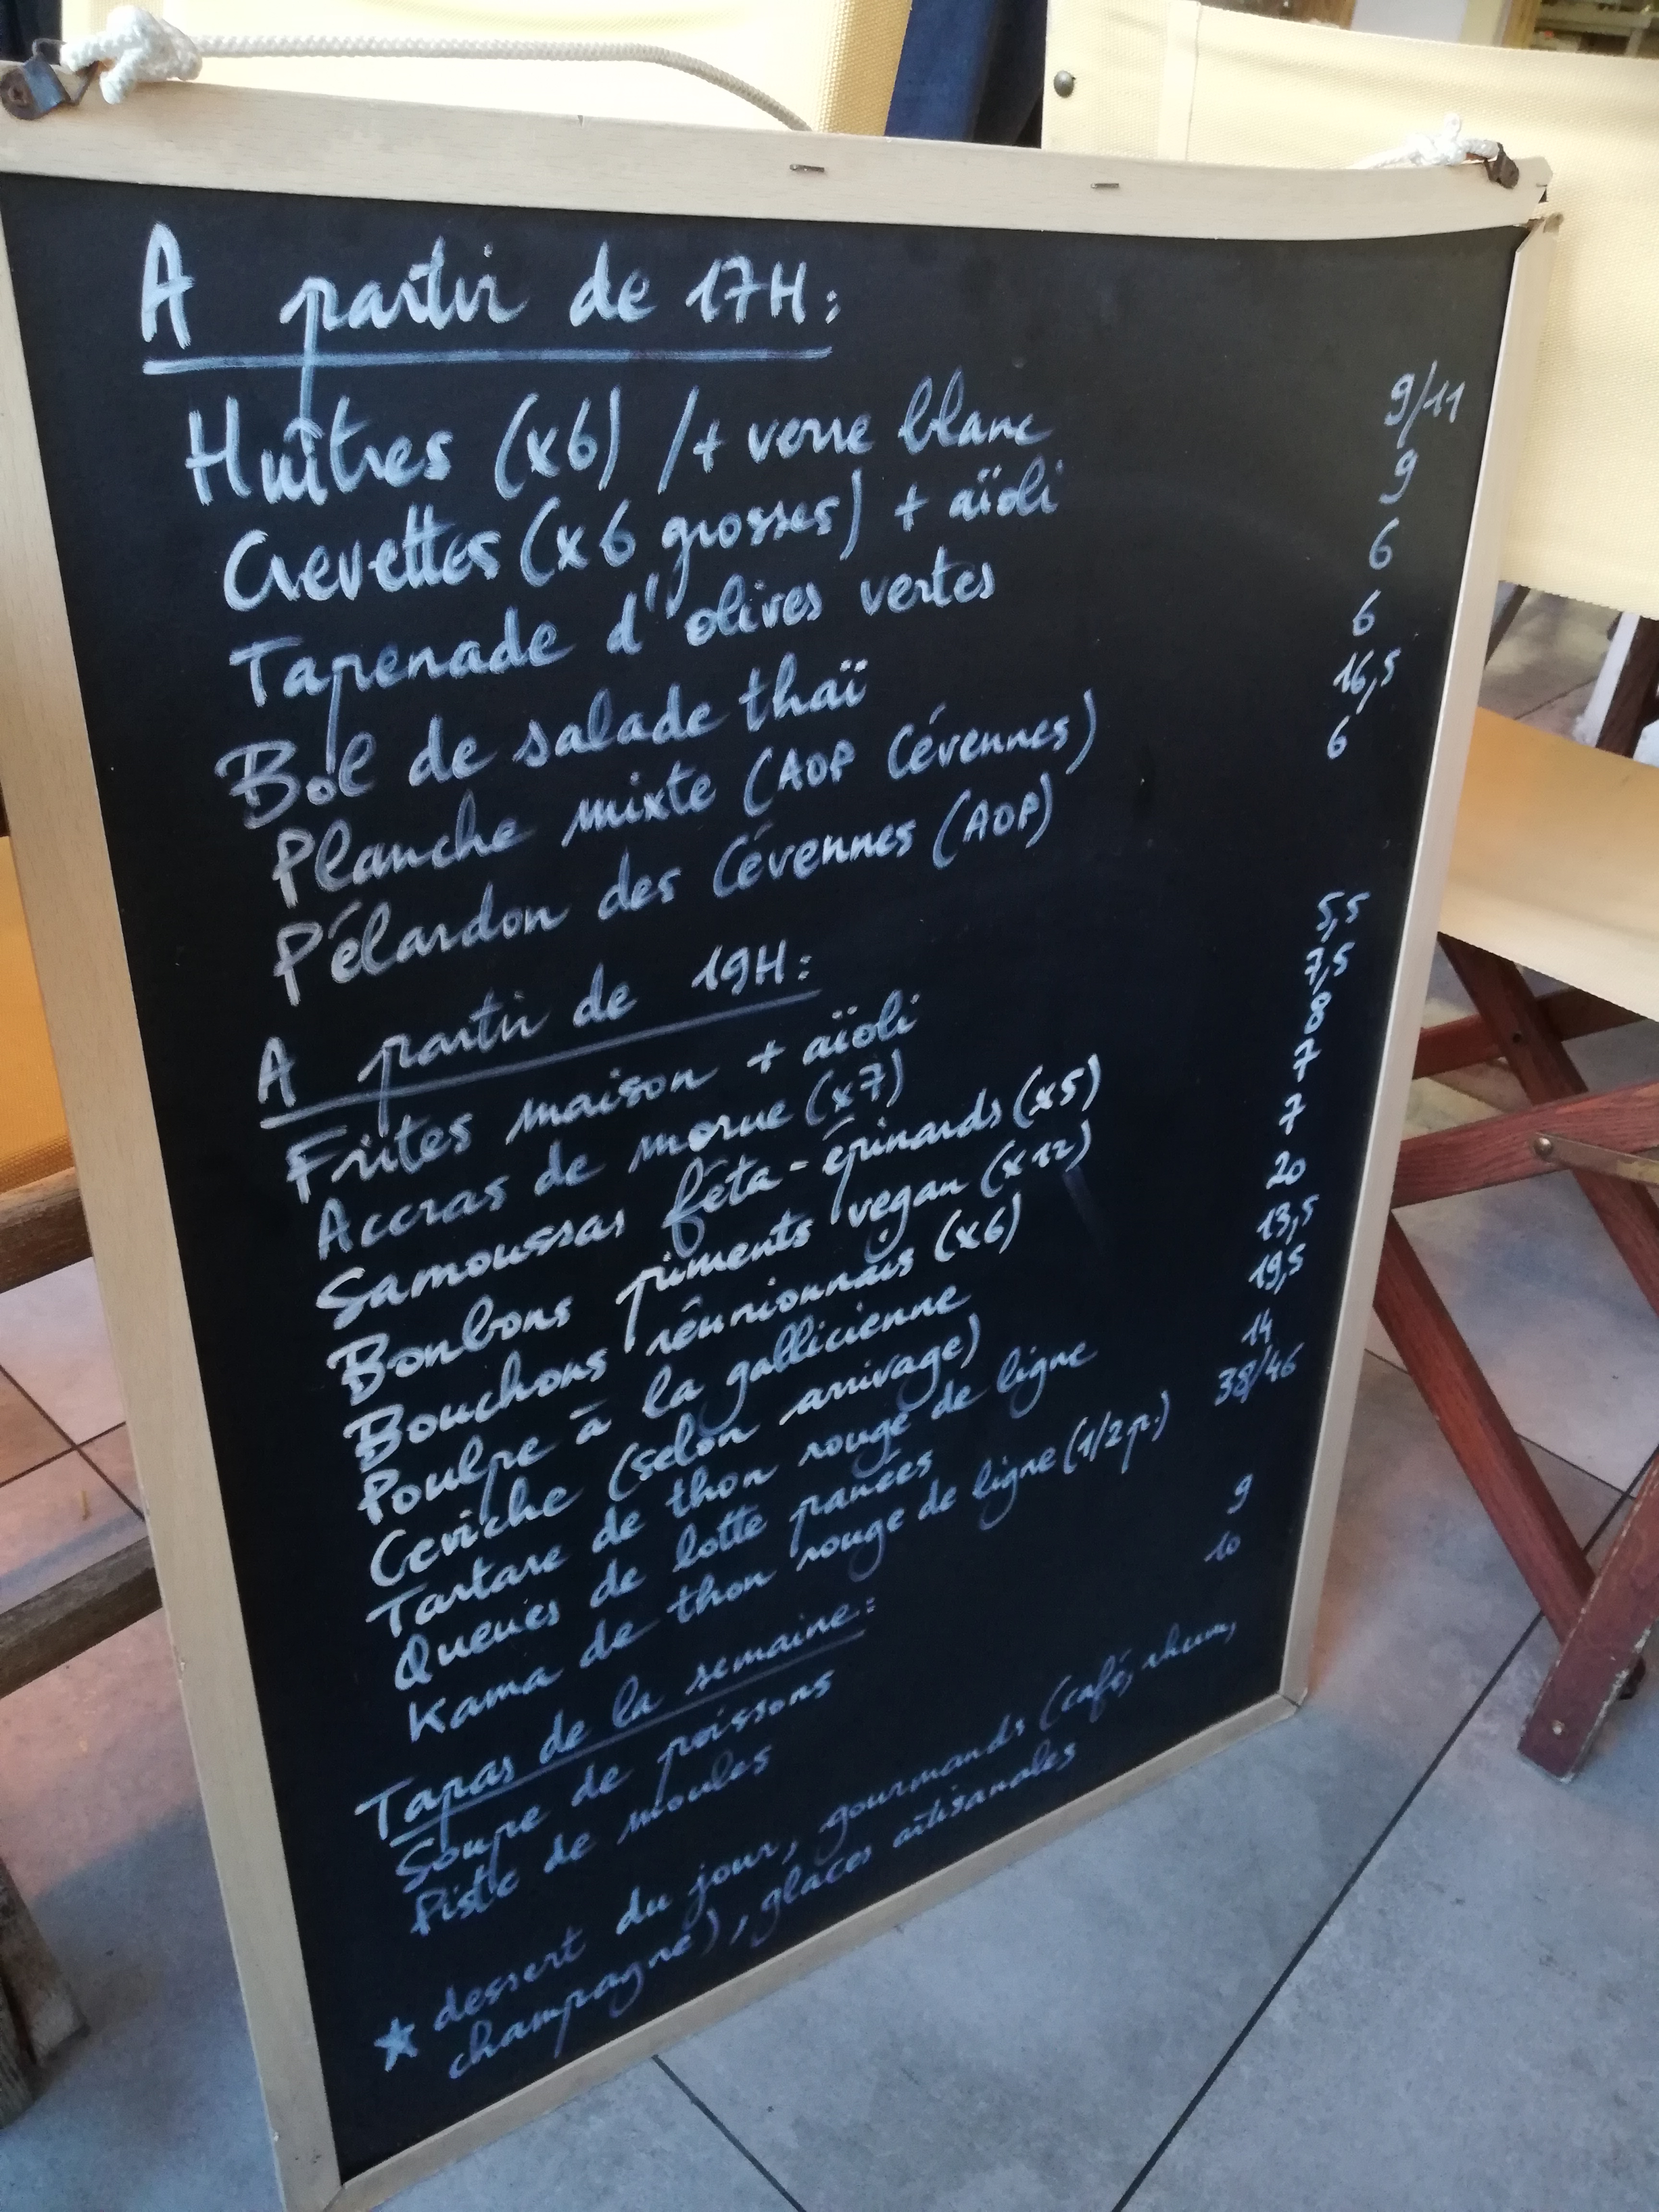 A partir de 17H:
Huîtres (x6) /+ verre blanc 9/11
Crevettes (x6 grosses) + aïoli 9
Tapenade d'olives vertes 6
Bol de salade thaï 6
Planche mixte (AOP Cévennes) 16,5
Pélardon des Cévennes (AOP) 6
A partir de 19H:
Frites maison + aïoli 5,5
Accras de morue (x7) 7,5
Samoussas féta-épinards (x5) 8
Bonbons piments vegan (x12) 7
Bouchons réunionnais (x6) 7
Poulpe à la gallicienne 20
Ceviche (selon arrivage) 13,5
Tartare de thon rouge de ligne 19,5
Queues de lotte panées 14
Kama de thon rouge de ligne (1/2 p.) 38/46
Tapas de la semaine:
Soupe de poissons 9
Piste de moules 10
★ dessert du jour, gourmands (café, rhum,
champagne), glaces artisanales